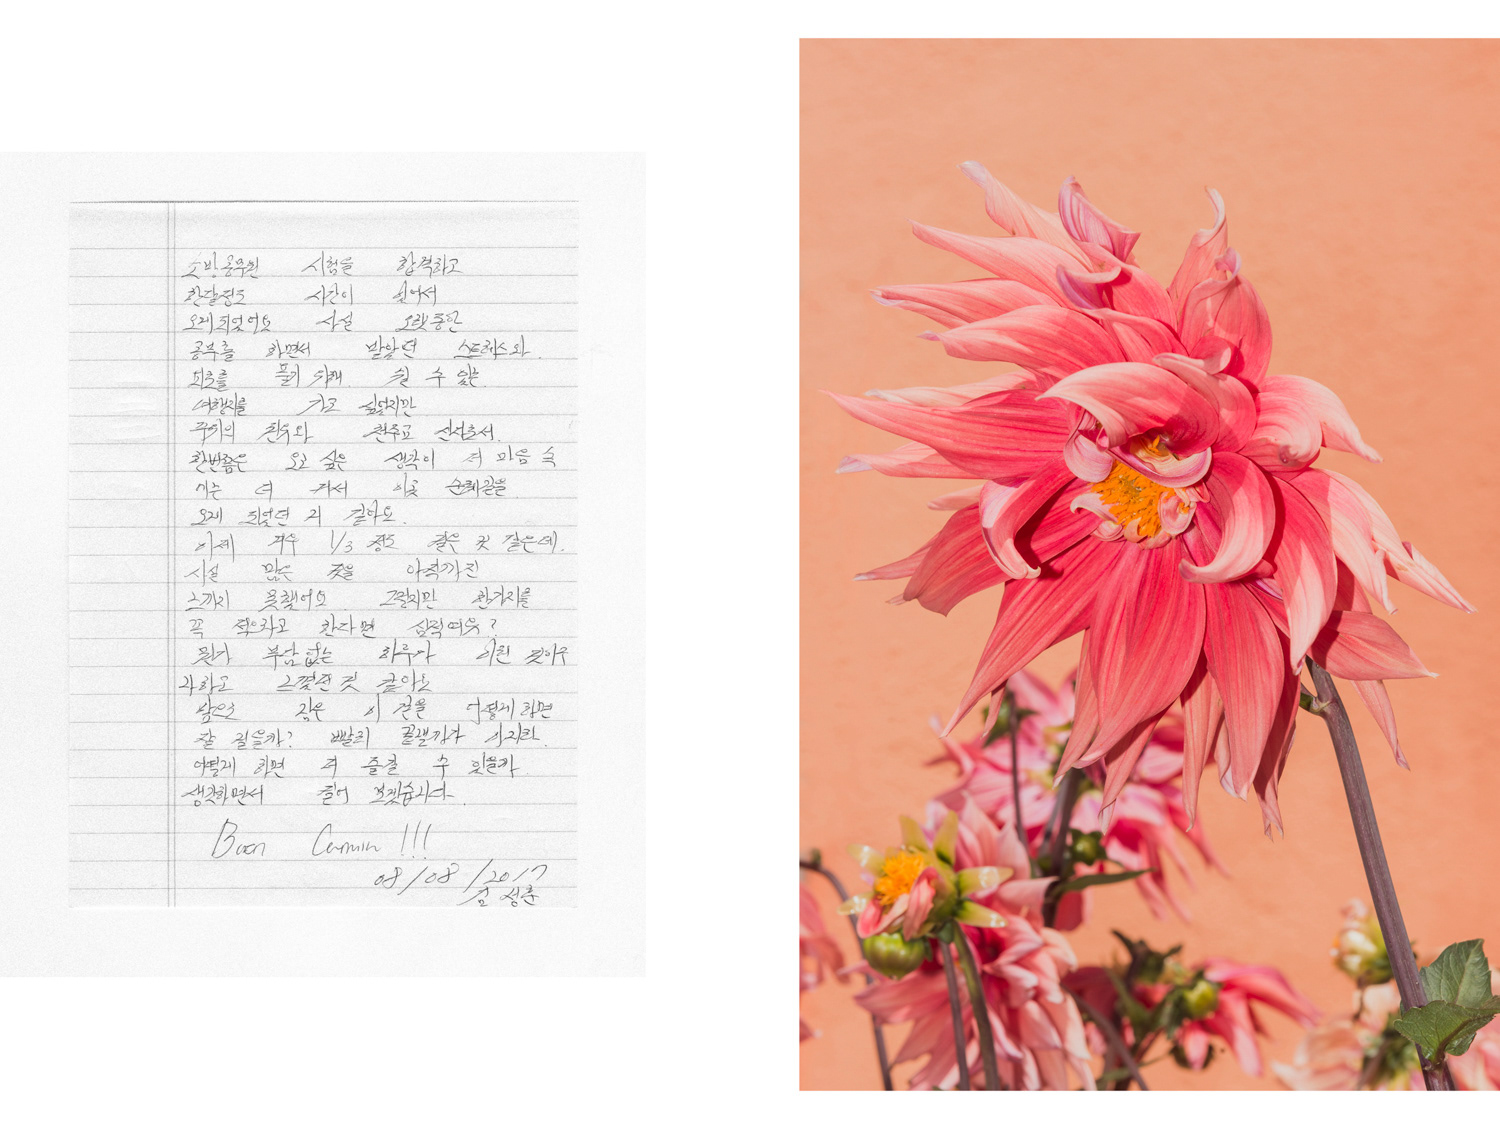 소방공무원 시험을 합격하고
한달정도 시간이 있어서
오게되었어요 사실 오랫동안
공부를 하면서 받았던 스트레스와
피로를 풀기 위해 쉴 수 있는
여행지를 가고 싶었지만
주위의 친구와 추고
한번쯤은 오고 싶은 생각이 더 마음 속
더 커져서 이곳 순례길을
오게 되었던 거 같아요.
이제 겨우 1/3 정도 걸은 것 같은데.
사실 많은 것을 아직까진
느끼지 못했어요. 그렇지만 한가지를
꼭 적으라고 한다면
뭔가 부담없는 하루가 이런 것이구
나하고 느꼈던 것 같아요
앞으로 남은 이 길을 어떻게 하면
잘 걸을까? 빨리 끝낼까가 아니라.
어떻게 하면 더 즐길 수 있을까.
생각하면서 걸어 보겠습니다.
Buen Camino !!!
08/08/2017
김 성춘